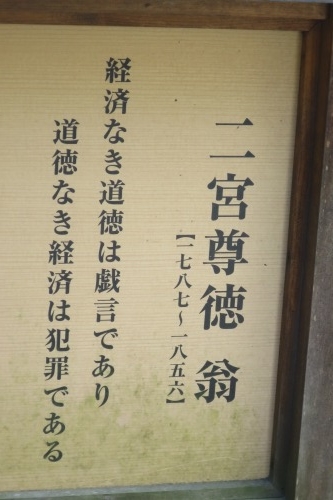 二宮尊徳 翁
【一七八七～一八五六】
経済なき道徳は戯言であり
道徳なき経済は犯罪である